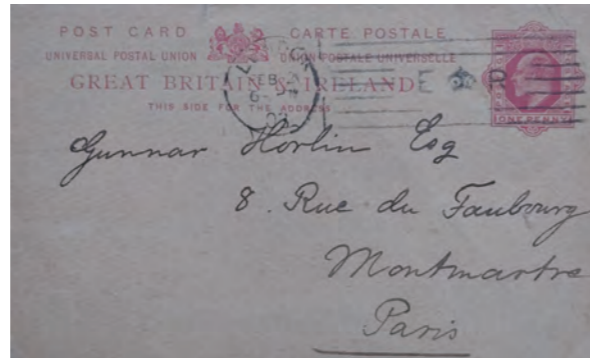 POST CARD CARTE POSTALE
UNIVERSAL POSTAL UNION UNION POSTALE UNIVERSELLE
GREAT BRITAIN & IRELAND
THIS SIDE FOR THE ADDRESS
LONDON
FEB
E R
ONE PENNY
Gunnar Hörlin Esq
8. Rue du Faubourg
Montmartre
Paris